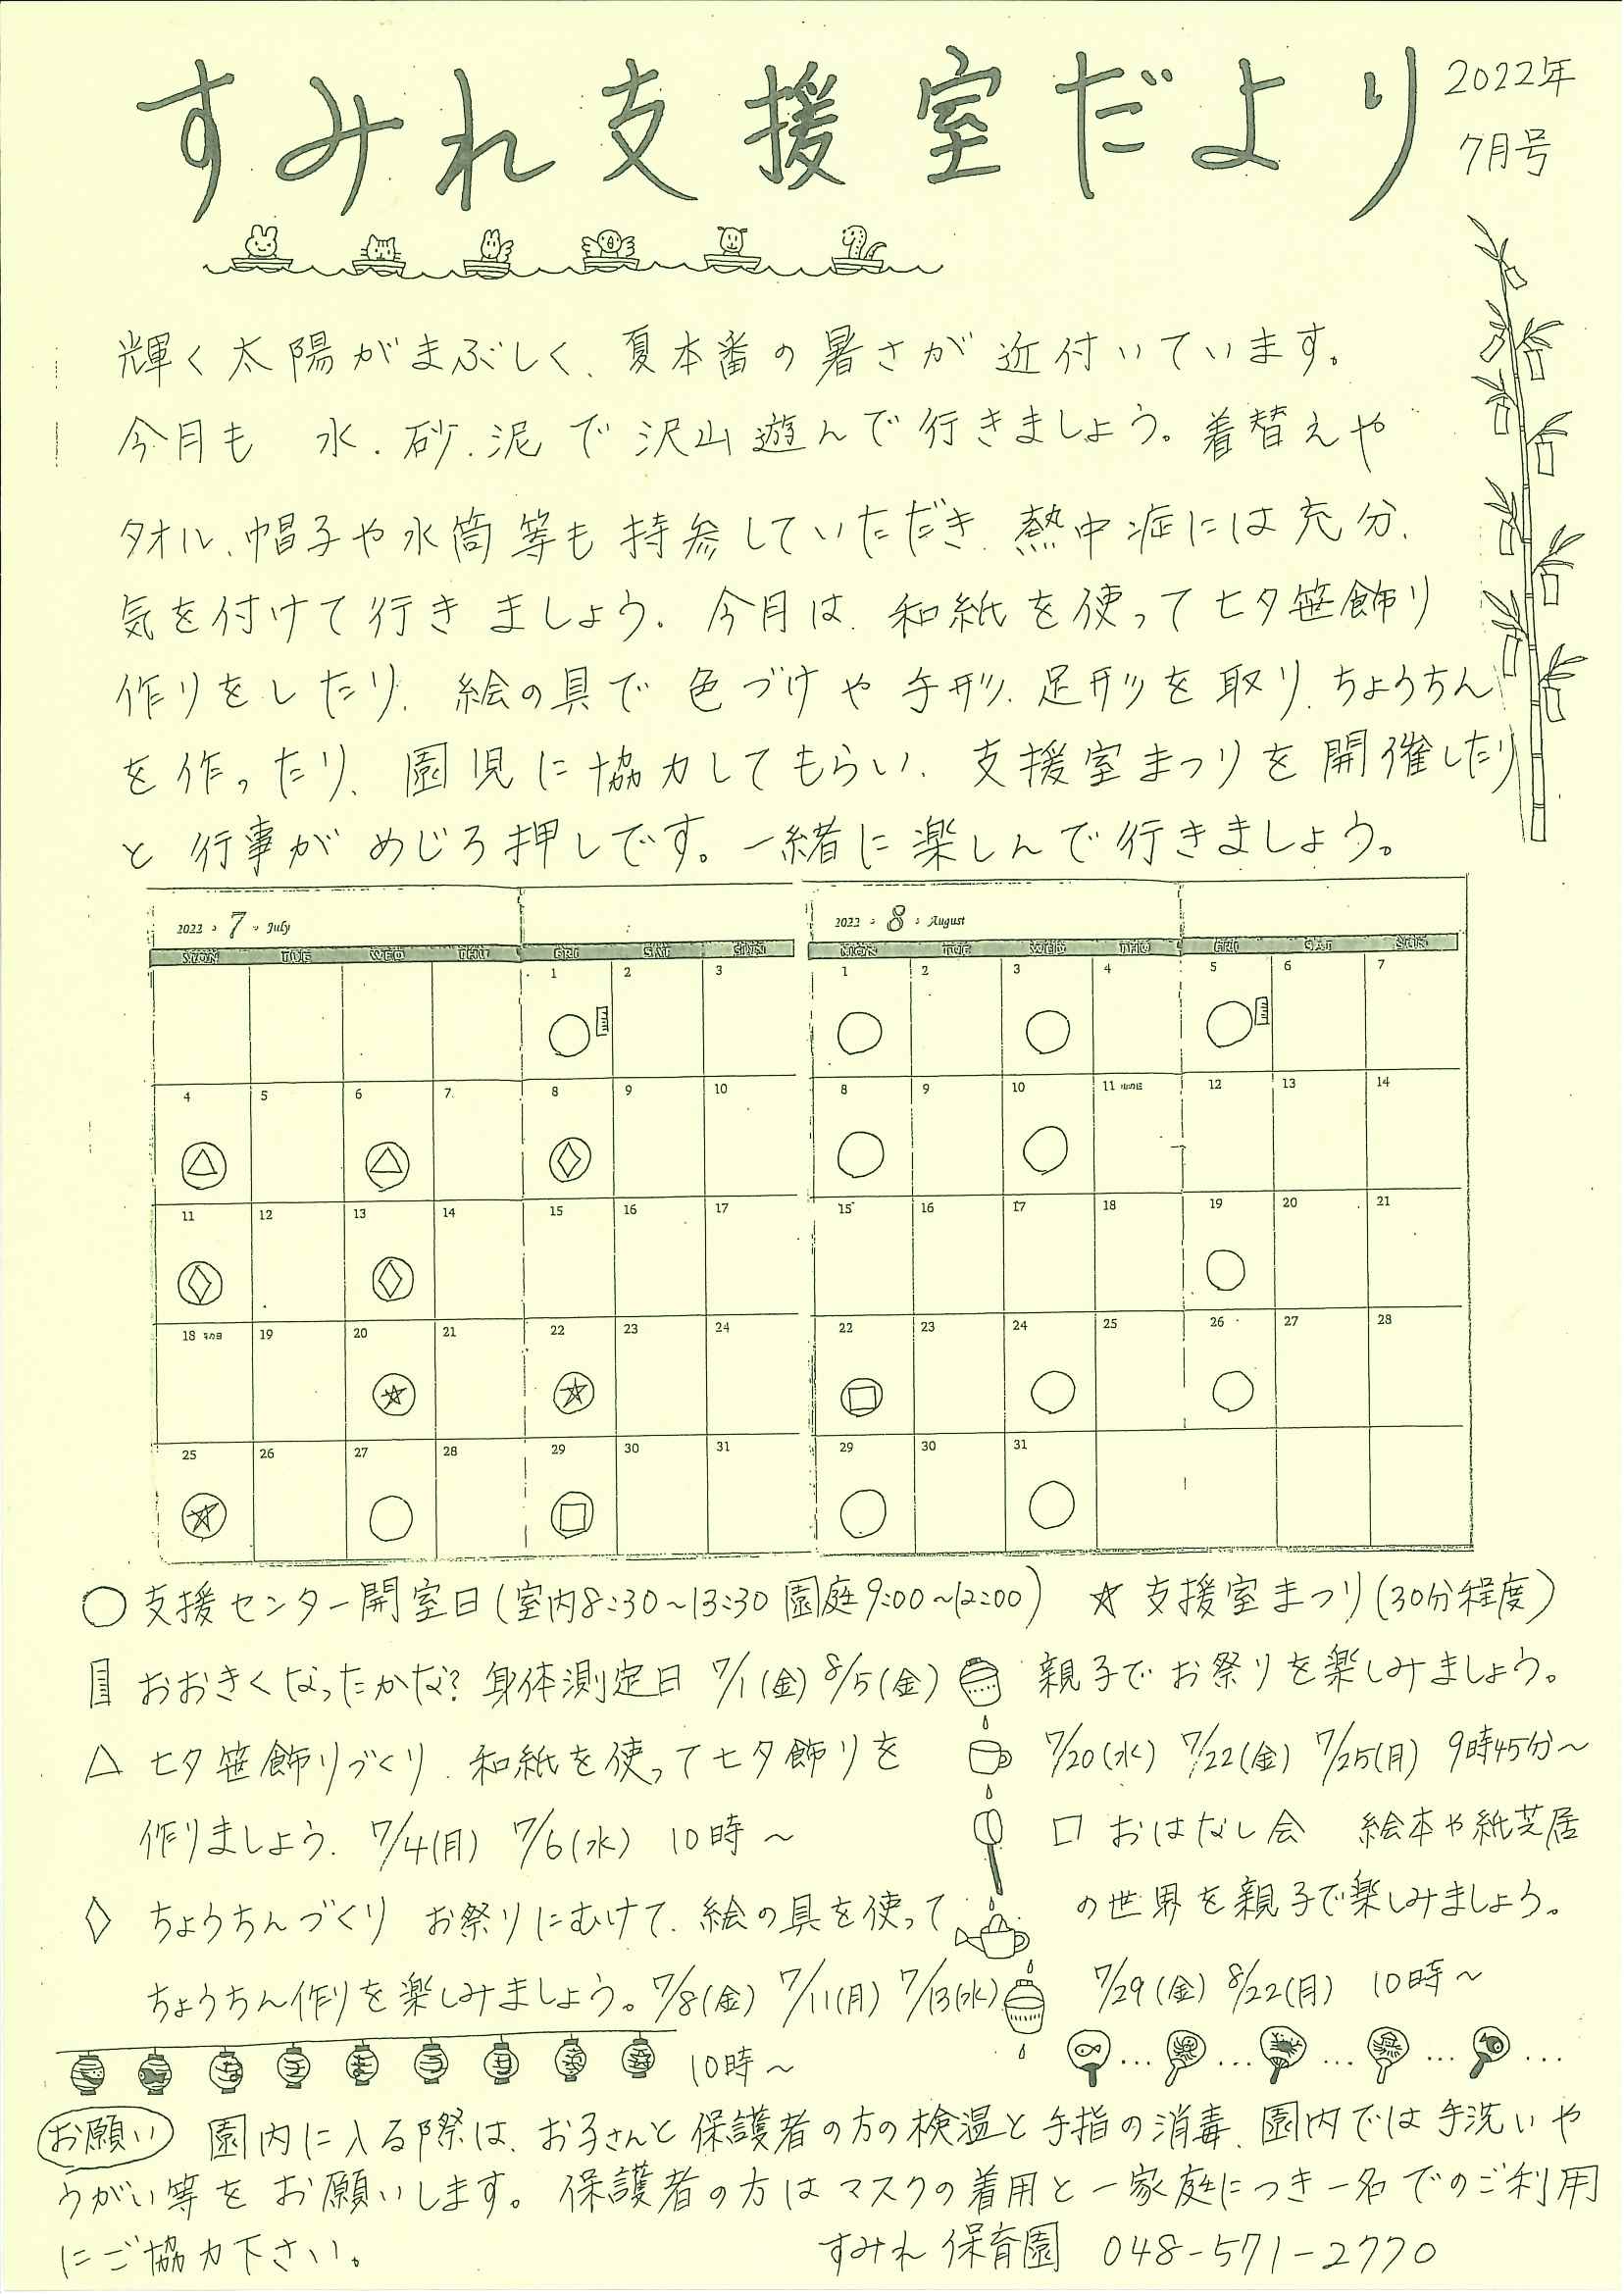 すみれ支援室だより
2022年
7月号
輝く太陽がまぶしく、夏本番の暑さが近付いています。
今月も 水、砂、泥で沢山遊んで行きましょう。着替えや
タオル、帽子や水筒等も持参していただき、熱中症には充分、
気を付けて行きましょう。今月は、和紙を使って七夕笹飾り
作りをしたり、絵の具で色づけや手形、足形を取り、ちょうちん
を作ったり、園児に協力してもらい、支援室まつりを開催したり
と行事がめじろ押しです。一緒に楽しんで行きましょう。
2022 7 July
MON TUE WED THU FRI SAT SUN
1 2 3
4 5 6 7 8 9 10
11 12 13 14 15 16 17
18 海の日 19 20 21 22 23 24
25 26 27 28 29 30 31
2022 8 August
MON TUE WED THU FRI SAT SUN
1 2 3 4 5 6 7
8 9 10 11 山の日 12 13 14
15 16 17 18 19 20 21
22 23 24 25 26 27 28
29 30 31
○支援センター開室日(室内8:30~13:30 園庭9:00~12:00)
おおきくなったかな?身体測定日 7/1(金) 8/5(金)
△ 七夕笹飾りづくり、和紙を使って七夕飾りを
作りましょう。7/4(月) 7/6(水) 10時~
◇ ちょうちんづくり お祭りにむけて、絵の具を使って
ちょうちん作りを楽しみましょう。7/8(金) 7/11(月) 7/13(水)
10時~
☆ 支援室まつり(30分程度)
親子でお祭りを楽しみましょう。
7/20(水) 7/22(金) 7/25(月) 9時45分~
□ おはなし会 絵本や紙芝居
の世界を親子で楽しみましょう。
7/29(金) 8/22(月) 10時~
お願い 園内に入る際は、お子さんと保護者の方の検温と手指の消毒、園内では手洗いや
うがい等をお願いします。保護者の方はマスクの着用と一家庭につき一名でのご利用
にご協力下さい。
すみれ保育園 048-571-2770